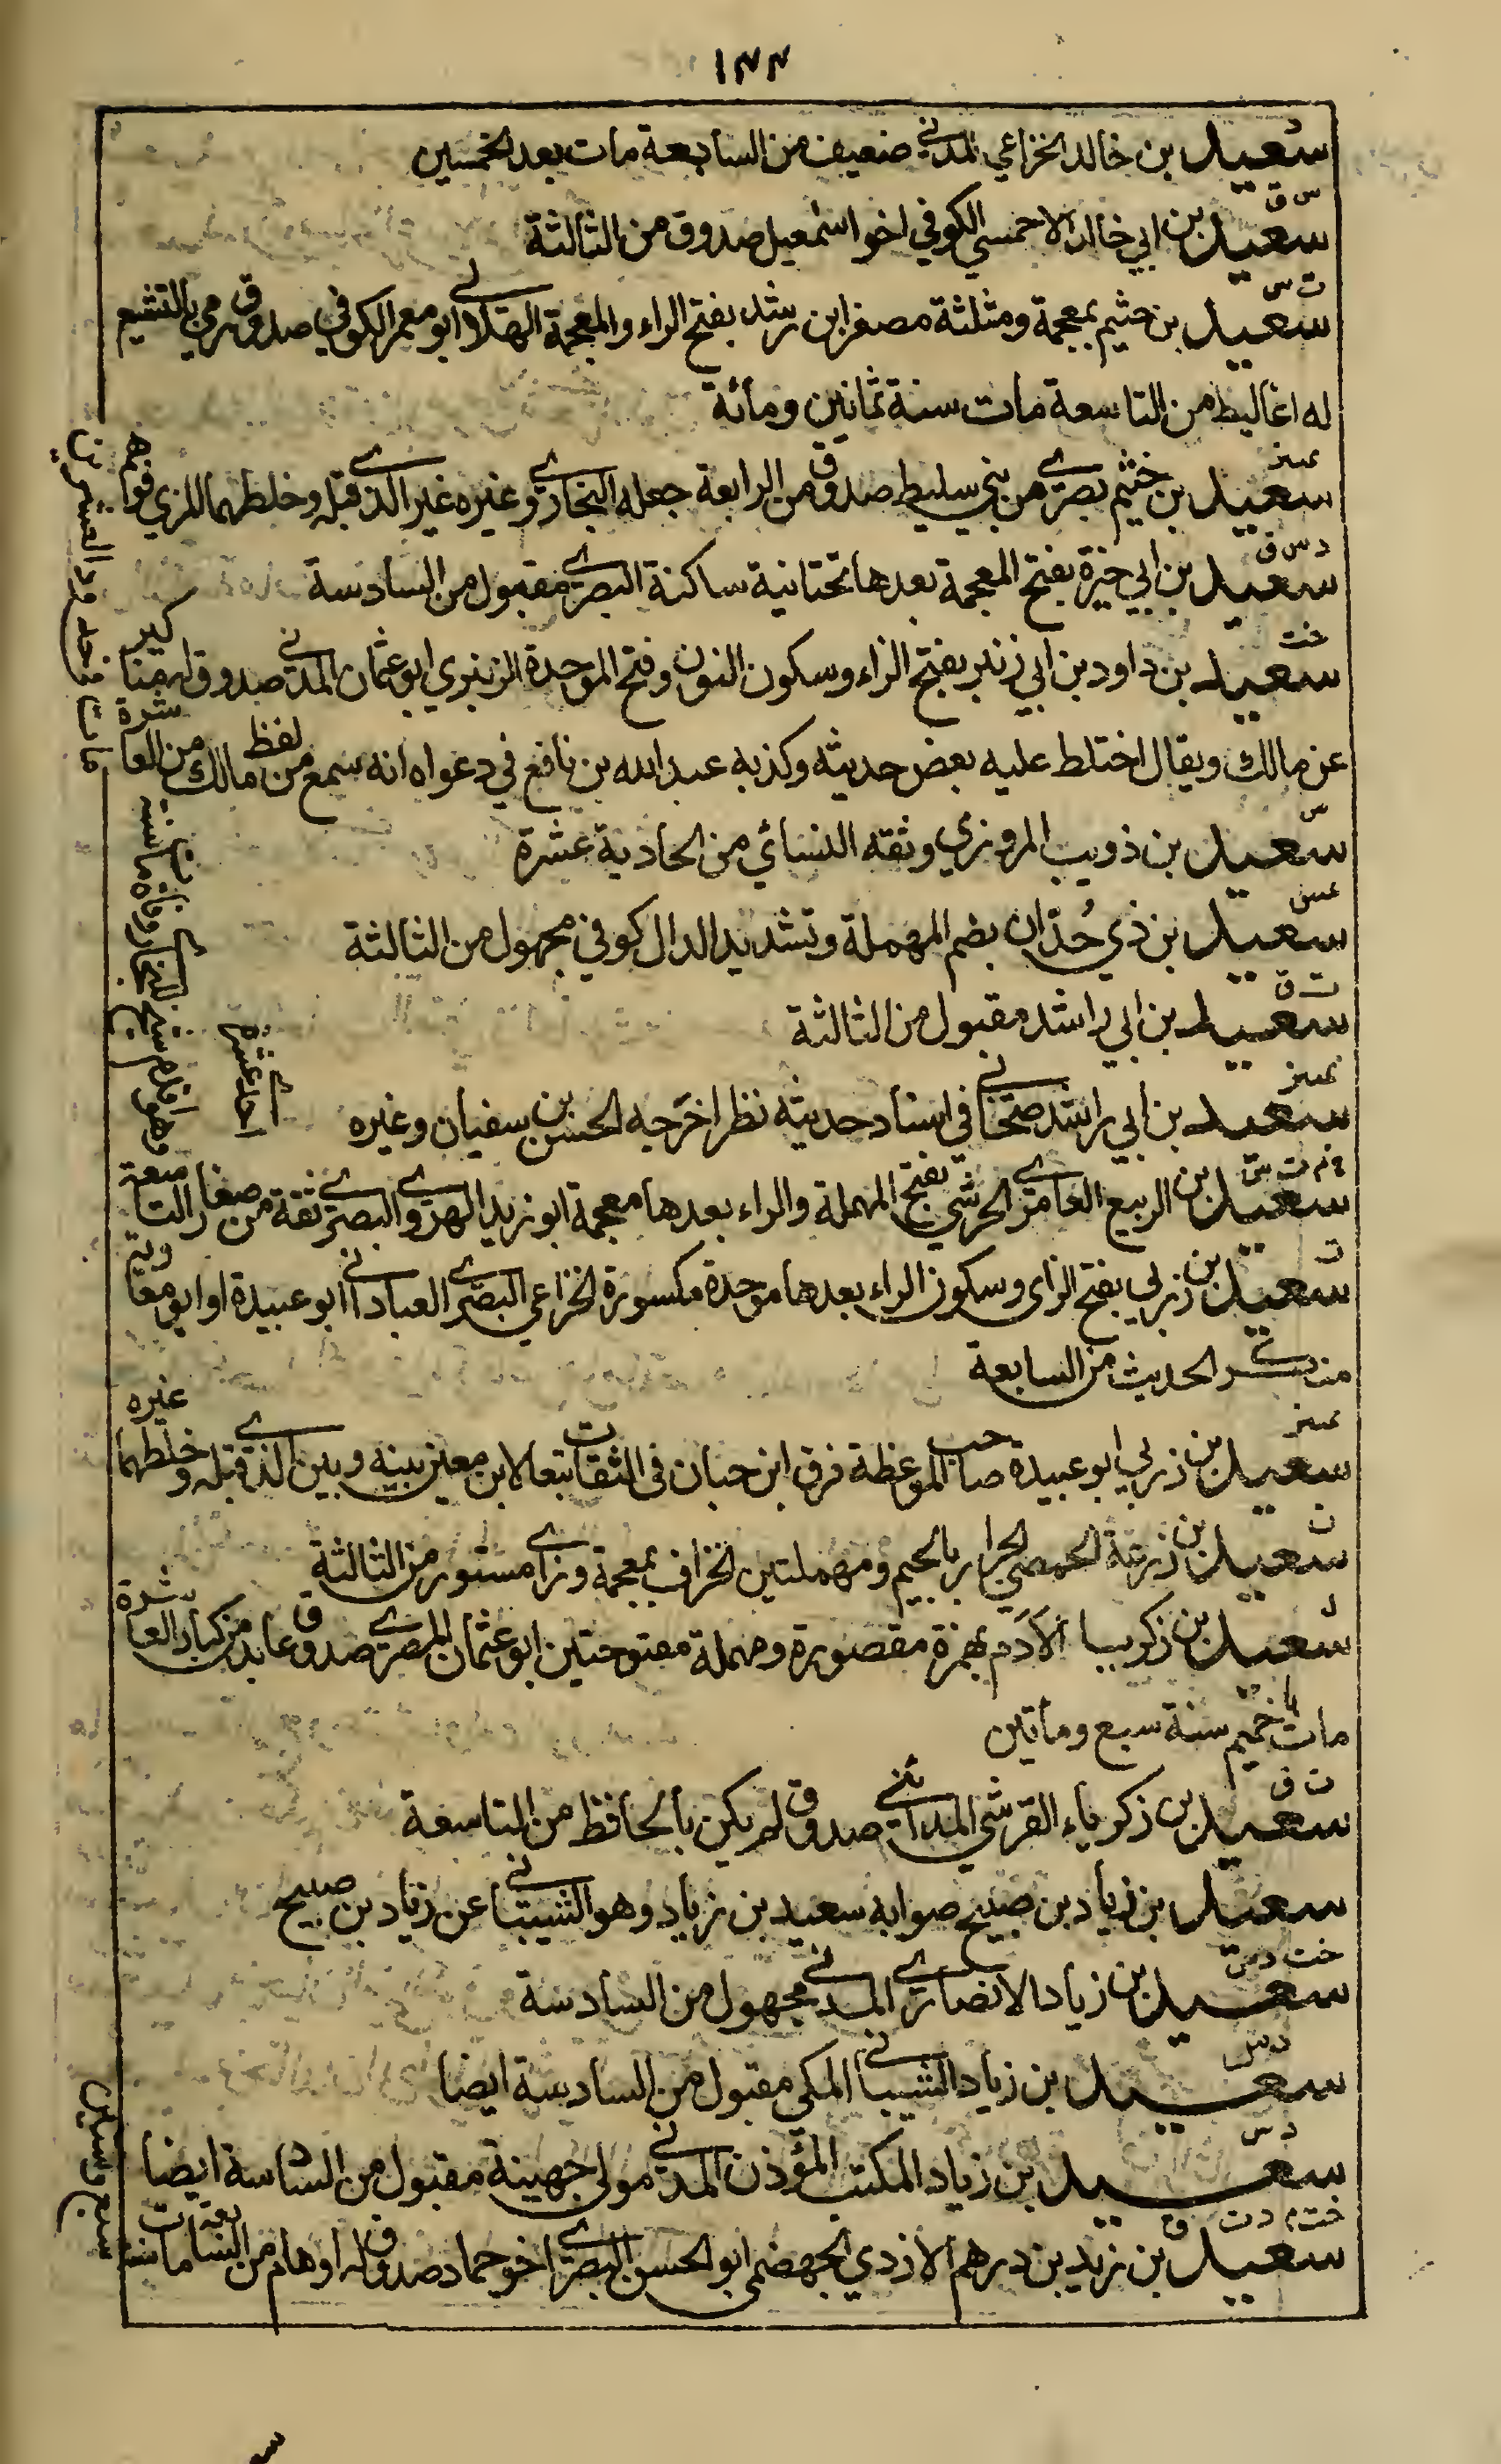 ١٤٤
د
سعيد بن خالد الخزاعي المدني ضعيف من السابعة مات بعد الخمسين
س ق
سعيد بن ابي خالد الاحمسي الكوفي اخو اسمعيل صدوق من الثالثة
ت س
سعيد بن خثيم بمعجمة ومثلثة مصغر ابن رشد بفتح الراء والمعجمة الهلالي ابو معمر الكوفي صدوق رمي بالتشيع
له اغاليط من التاسعة مات سنة ثمانين ومائة
تميز
سعيد بن خثيم بصري من بني سليط صدوق من الرابعة جعله البخاري وغيره غير الذي قبله وخلطهما المزي فوهم
د س ق
سعيد بن ابي خيرة بفتح المعجمة بعدها تحتانية ساكنة البصري مقبول من السادسة
خت
سعيد بن داود بن ابي زنبر بفتح الزاء وسكون النون وفتح الموحدة الزنبري ابو عثمان المدني صدوق له مناكير
عن مالك ويقال اختلط عليه بعض حديثه وكذبه عبد الله بن نافع في دعواه انه سمع من لفظ مالك من العاشرة
مات في حدود العشرين
س
سعيد بن ذويب المروزي وثقه النسائي من الحادية عشرة
عس
سعيد بن ذي حُدّان بضم المهملة وتشديد الدال كوفي مجهول من الثالثة
ت ق
سعيد بن ابي راشد مقبول من الثالثة
تميز
سعيد بن ابي راشد صحابي في اسناد حديثه نظر اخرجه الحسن بن سفيان وغيره
خ م ت س
سعيد بن الربيع العامري الحرشي بفتح المهملة والراء بعدها معجمة ابو زيد الهروي البصري ثقة من صغار التاسعة
وهو اقدم شيخ للبخاري وفاة مات سنة
احد عشرة
ت
سعيد بن زربي بفتح الزاى وسكون الراء بعدها موحدة مكسورة الخزاعي البصري العباداني ابو عبيدة او ابو معاوية
منكر الحديث من السابعة
تميز
سعيد بن زربي ابو عبيدة صاحب الموعظة فرق ابن حبان في الثقات تبعا لابن معين بينه وبين الذي قبله وخلطهما غيره
ت
سعيد بن زرعة الحمصي الجرار بالجيم ومهملتين الخزاف بمعجمة وزاي مستور من الثالثة
ل
سعيد بن زكريا الأدَم بهمزة مقصورة ومهملة مفتوحتين ابو عثمان المصري صدوق عابد من كبار العاشرة
مات باخميم سنة سبع ومأتين
ت ق
سعيد بن زكرياء القرشي المدائني صدوق لم يكن بالحافظ من التاسعة
سعيد بن زياد بن صبيح صوابه سعيد بن زياد وهو الشيباني عن زياد بن صبيح
خت د س
سعيد بن زياد الانصاري المدني مجهول من السادسة
د س
سعيد بن زياد الشيباني المكي مقبول من السادسة ايضا
د س
سعيد بن زياد المكتب المؤذن المدني مولى جهينة مقبول من السادسة ايضا
خت م د ت ق
سعيد بن زيد بن درهم الازدي الجهضمي ابو الحسن البصري اخو حماد صدوق له اوهام من السابعة مات سنة
سبع وستين